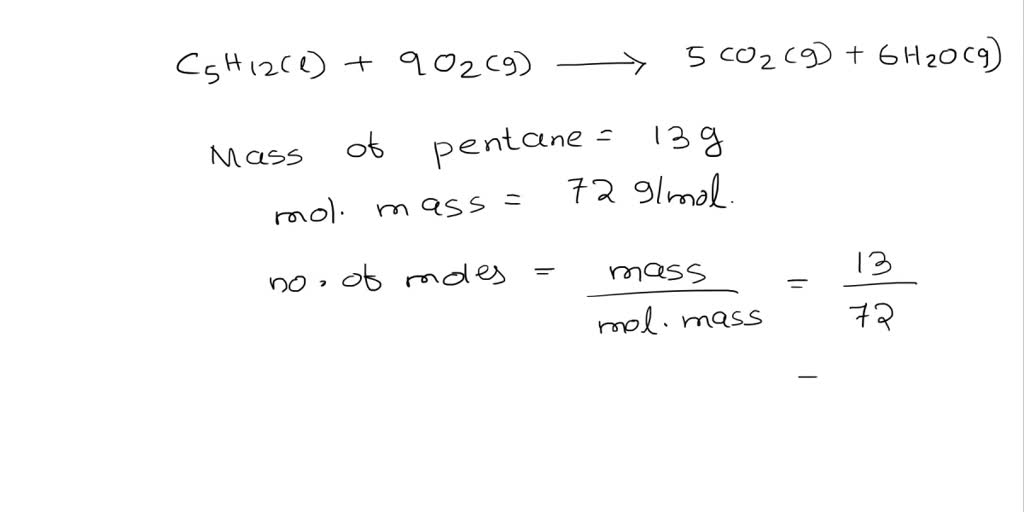 C5H12(l) + 9O2(g) ⟶ 5CO2(g) + 6H2O(g)
Mass of pentane = 13g
mol. mass = 72 g/mol.
no. of moles = mass / mol. mass = 13 / 72
=